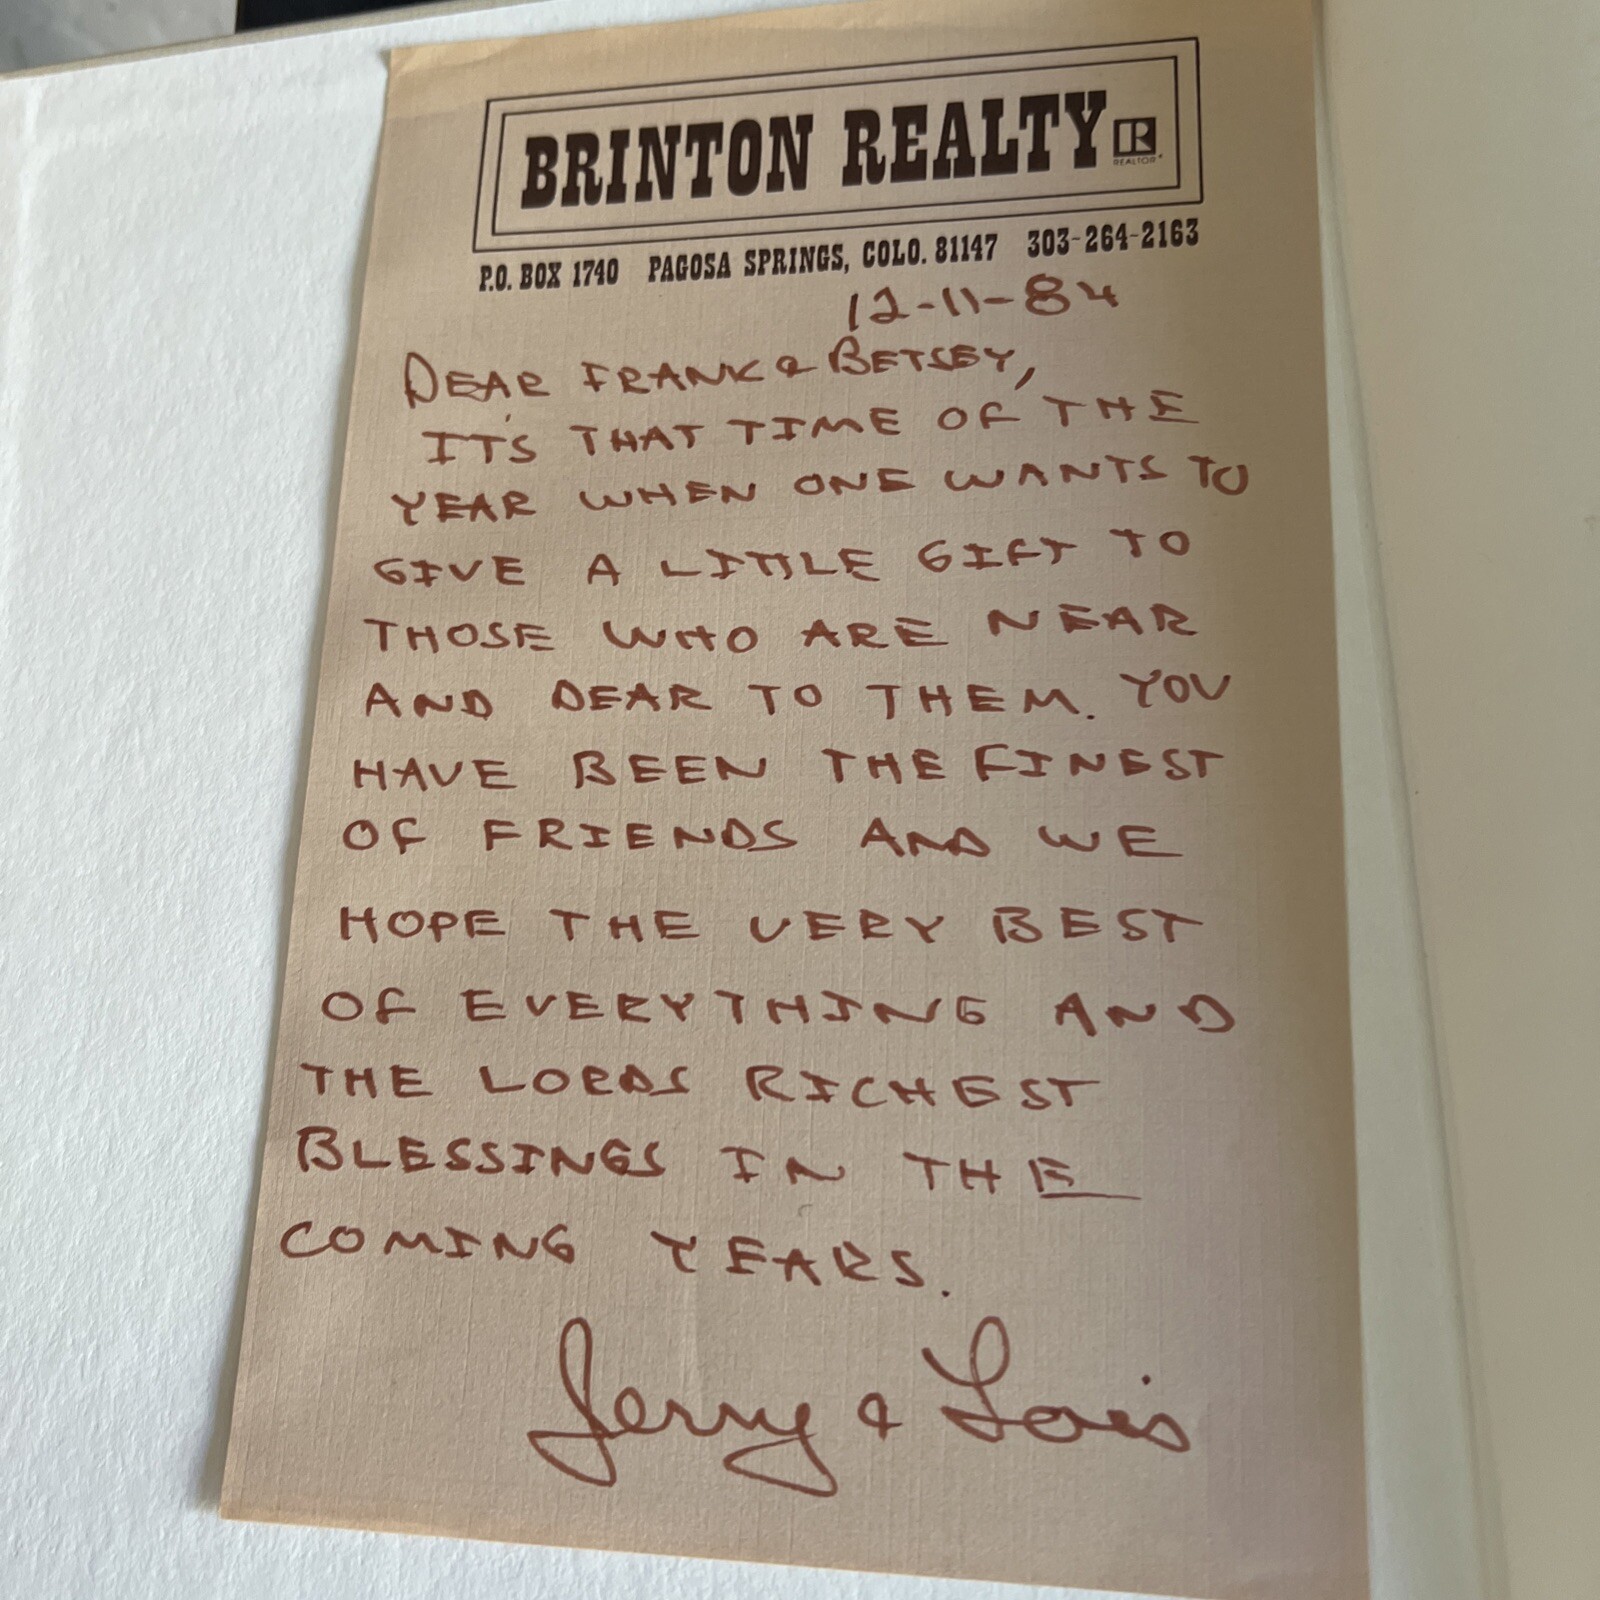 BRINTON REALTY R
REALTOR®
P.O. BOX 1740 PAGOSA SPRINGS, COLO. 81147 303-264-2163
12-11-84
DEAR FRANK & BETSEY,
IT'S THAT TIME OF THE
YEAR WHEN ONE WANTS TO
GIVE A LITTLE GIFT TO
THOSE WHO ARE NEAR
AND DEAR TO THEM. YOU
HAVE BEEN THE FINEST
OF FRIENDS AND WE
HOPE THE VERY BEST
OF EVERYTHING AND
THE LORDS RICHEST
BLESSINGS IN THE
COMING YEARS.
Jerry & Lois